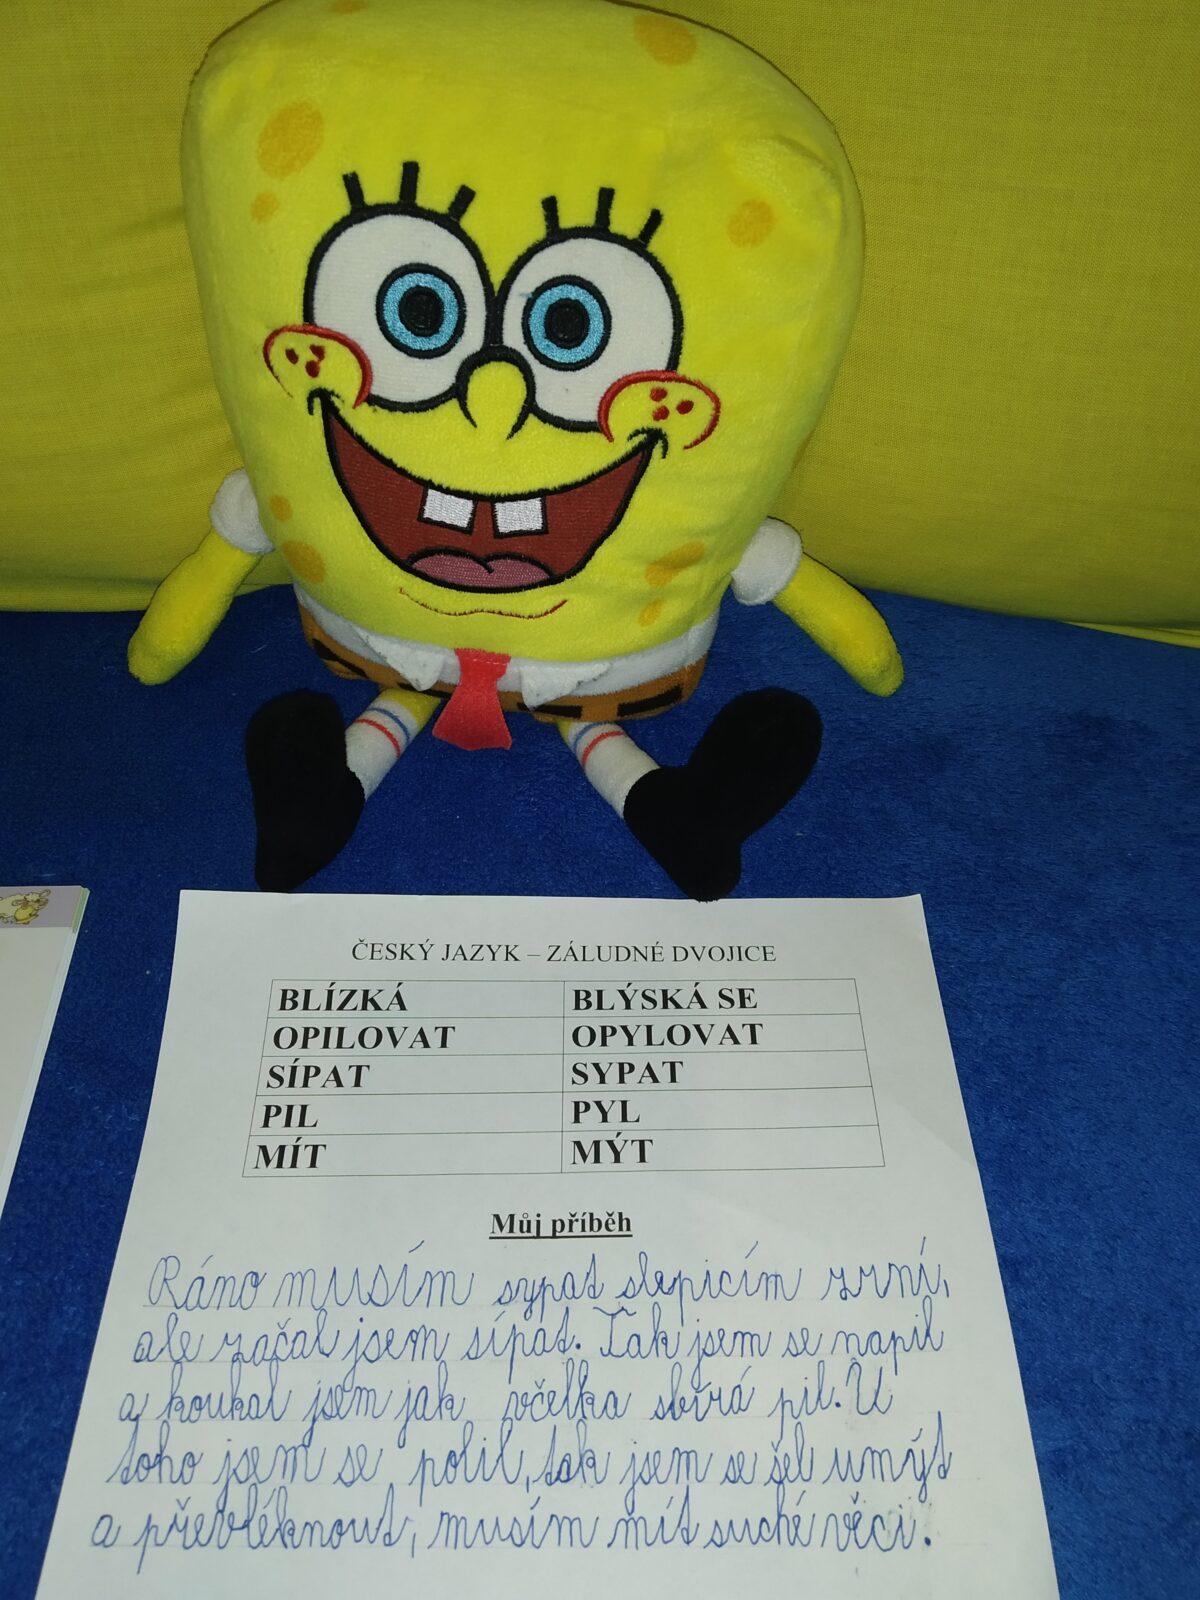 ČESKÝ JAZYK – ZÁLUDNÉ DVOJICE
BLÍZKÁ BLÝSKÁ SE
OPILOVAT OPYLOVAT
SÍPAT SYPAT
PIL PYL
MÍT MÝT
Můj příběh
Ráno musím sypat slepicím zrní,
ale začal jsem sípat. Tak jsem se napil
a koukal jsem jak včelka sbírá pil. U
toho jsem se polil, tak jsem se šel umýt
a převléknout, musím mít suché věci.